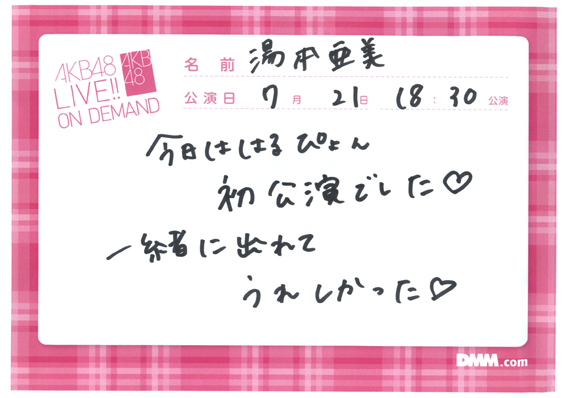 AKB48
LIVE!!
ON DEMAND
AKB
48
名前 湯本亜美
公演日 7月 21日 18:30 公演
今日ははるぴょん
初公演でした♡
一緒に出れて
うれしかった♡
DMM.com